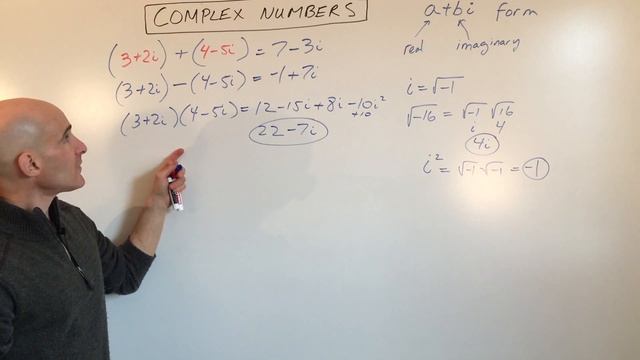 COMPLEX NUMBERS
(3+2i) + (4-5i) = 7-3i
(3+2i) - (4-5i) = -1+7i
(3+2i)(4-5i) = 12-15i+8i-10i²
+10
22-7i
a+bi form
real imaginary
i = √-1
√-16 = √-1 √16
i 4
4i
i² = √-1 √-1 = -1